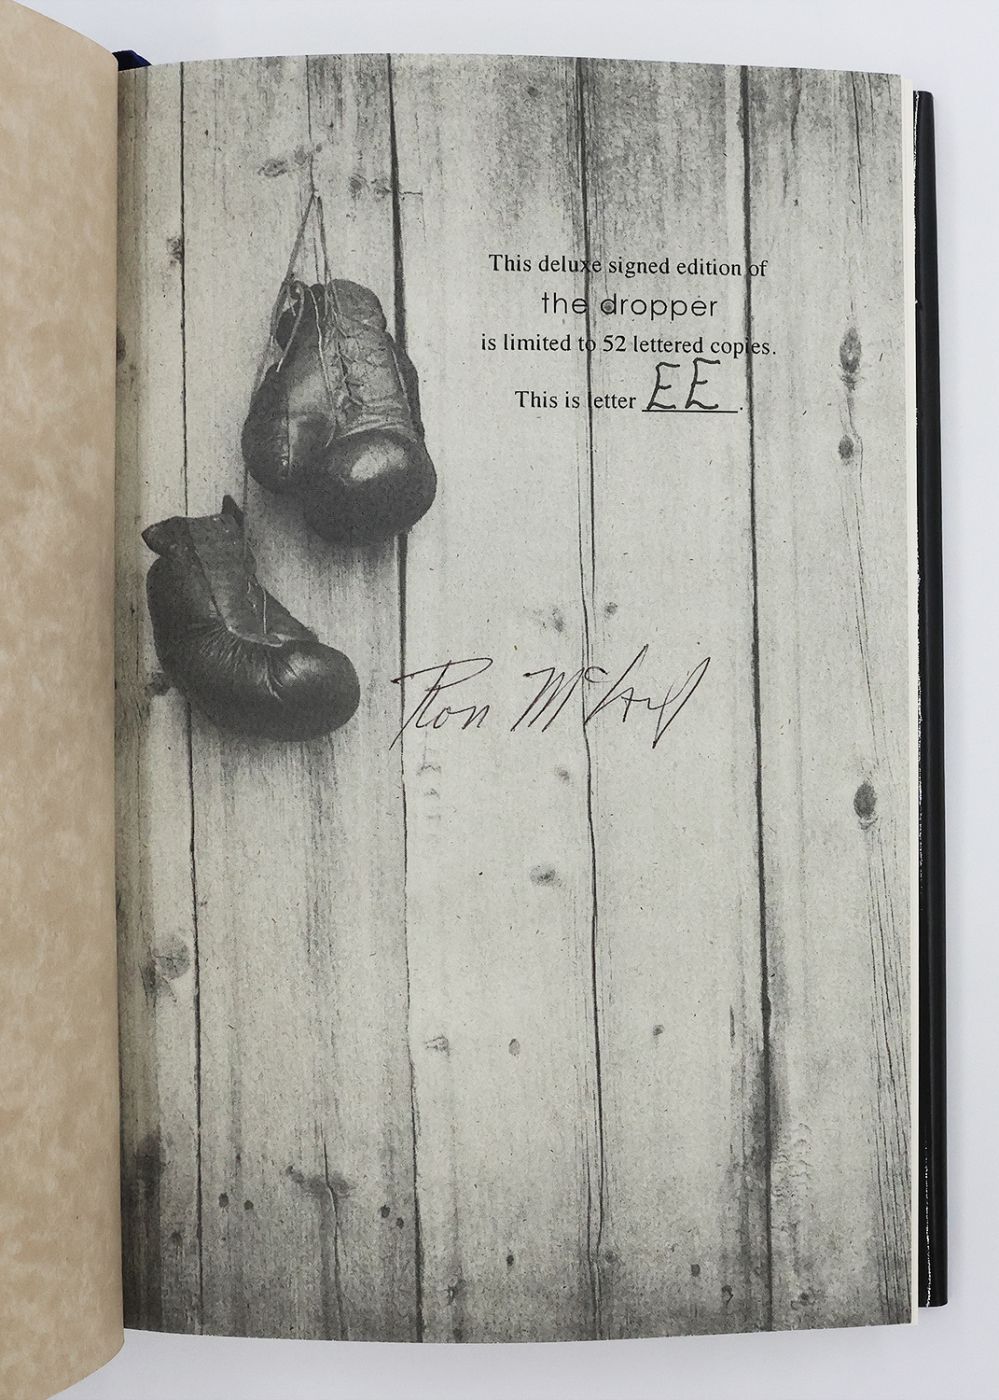 This deluxe signed edition of
the dropper
is limited to 52 lettered copies.
This is letter EE.
Ron McLarty